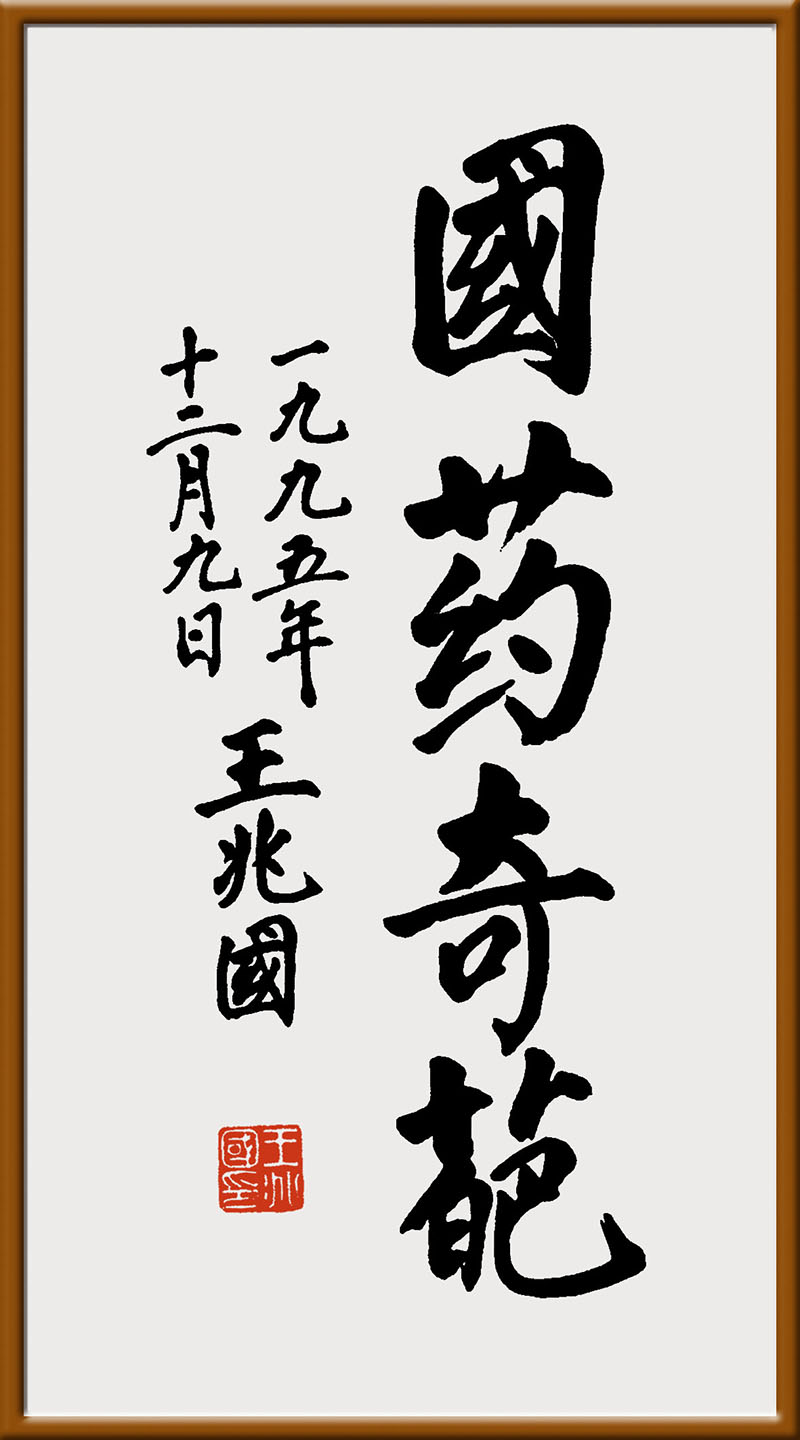 國药奇葩
一九九五年
十二月九日
王兆國
王兆國印